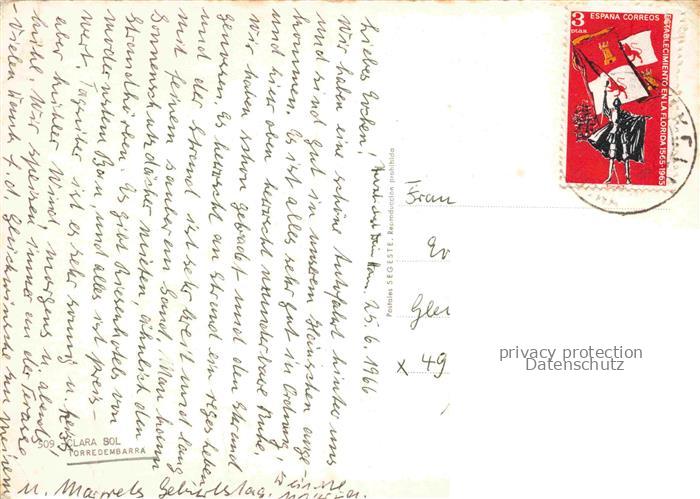 25. 6. 1966
Liebes Evchen,
Wir haben eine schöne Autofahrt hinter uns
und sind gut in unserem Häuschen ange-
kommen. Es ist alles sehr gut in Ordnung,
und hier oben herrscht wunderbare Ruhe.
Wir haben schon gebadet und den Strand
genossen. Es herrscht am Strand ein reges Leben
und der Strand ist sehr breit und lang
mit feinem sauberem Sand. Man kann
Sonnenschutzdächer mieten, ähnlich den
Strandkörben. Es gibt Riesenhotels von
modernstem Bau, und alles ist preis-
wert. Tagsüber ist es sehr sonnig u. heiss,
aber leichter Wind, morgens u. abends
kühl. Wir speisen immer an der Terasse
Vielen Dank f. d. Glückwünsche zu meinem
u. Geburtstag.
Postales SEGESTE. Reproducción prohibida
Frau
Ev
Glei
x 49
3
PTAS.
ESPAÑA CORREOS
ESTABLECIMIENTO EN LA FLORIDA 1565-1965
privacy protection
Datenschutz
509 - CLARA SOL
TORREDEMBARRA